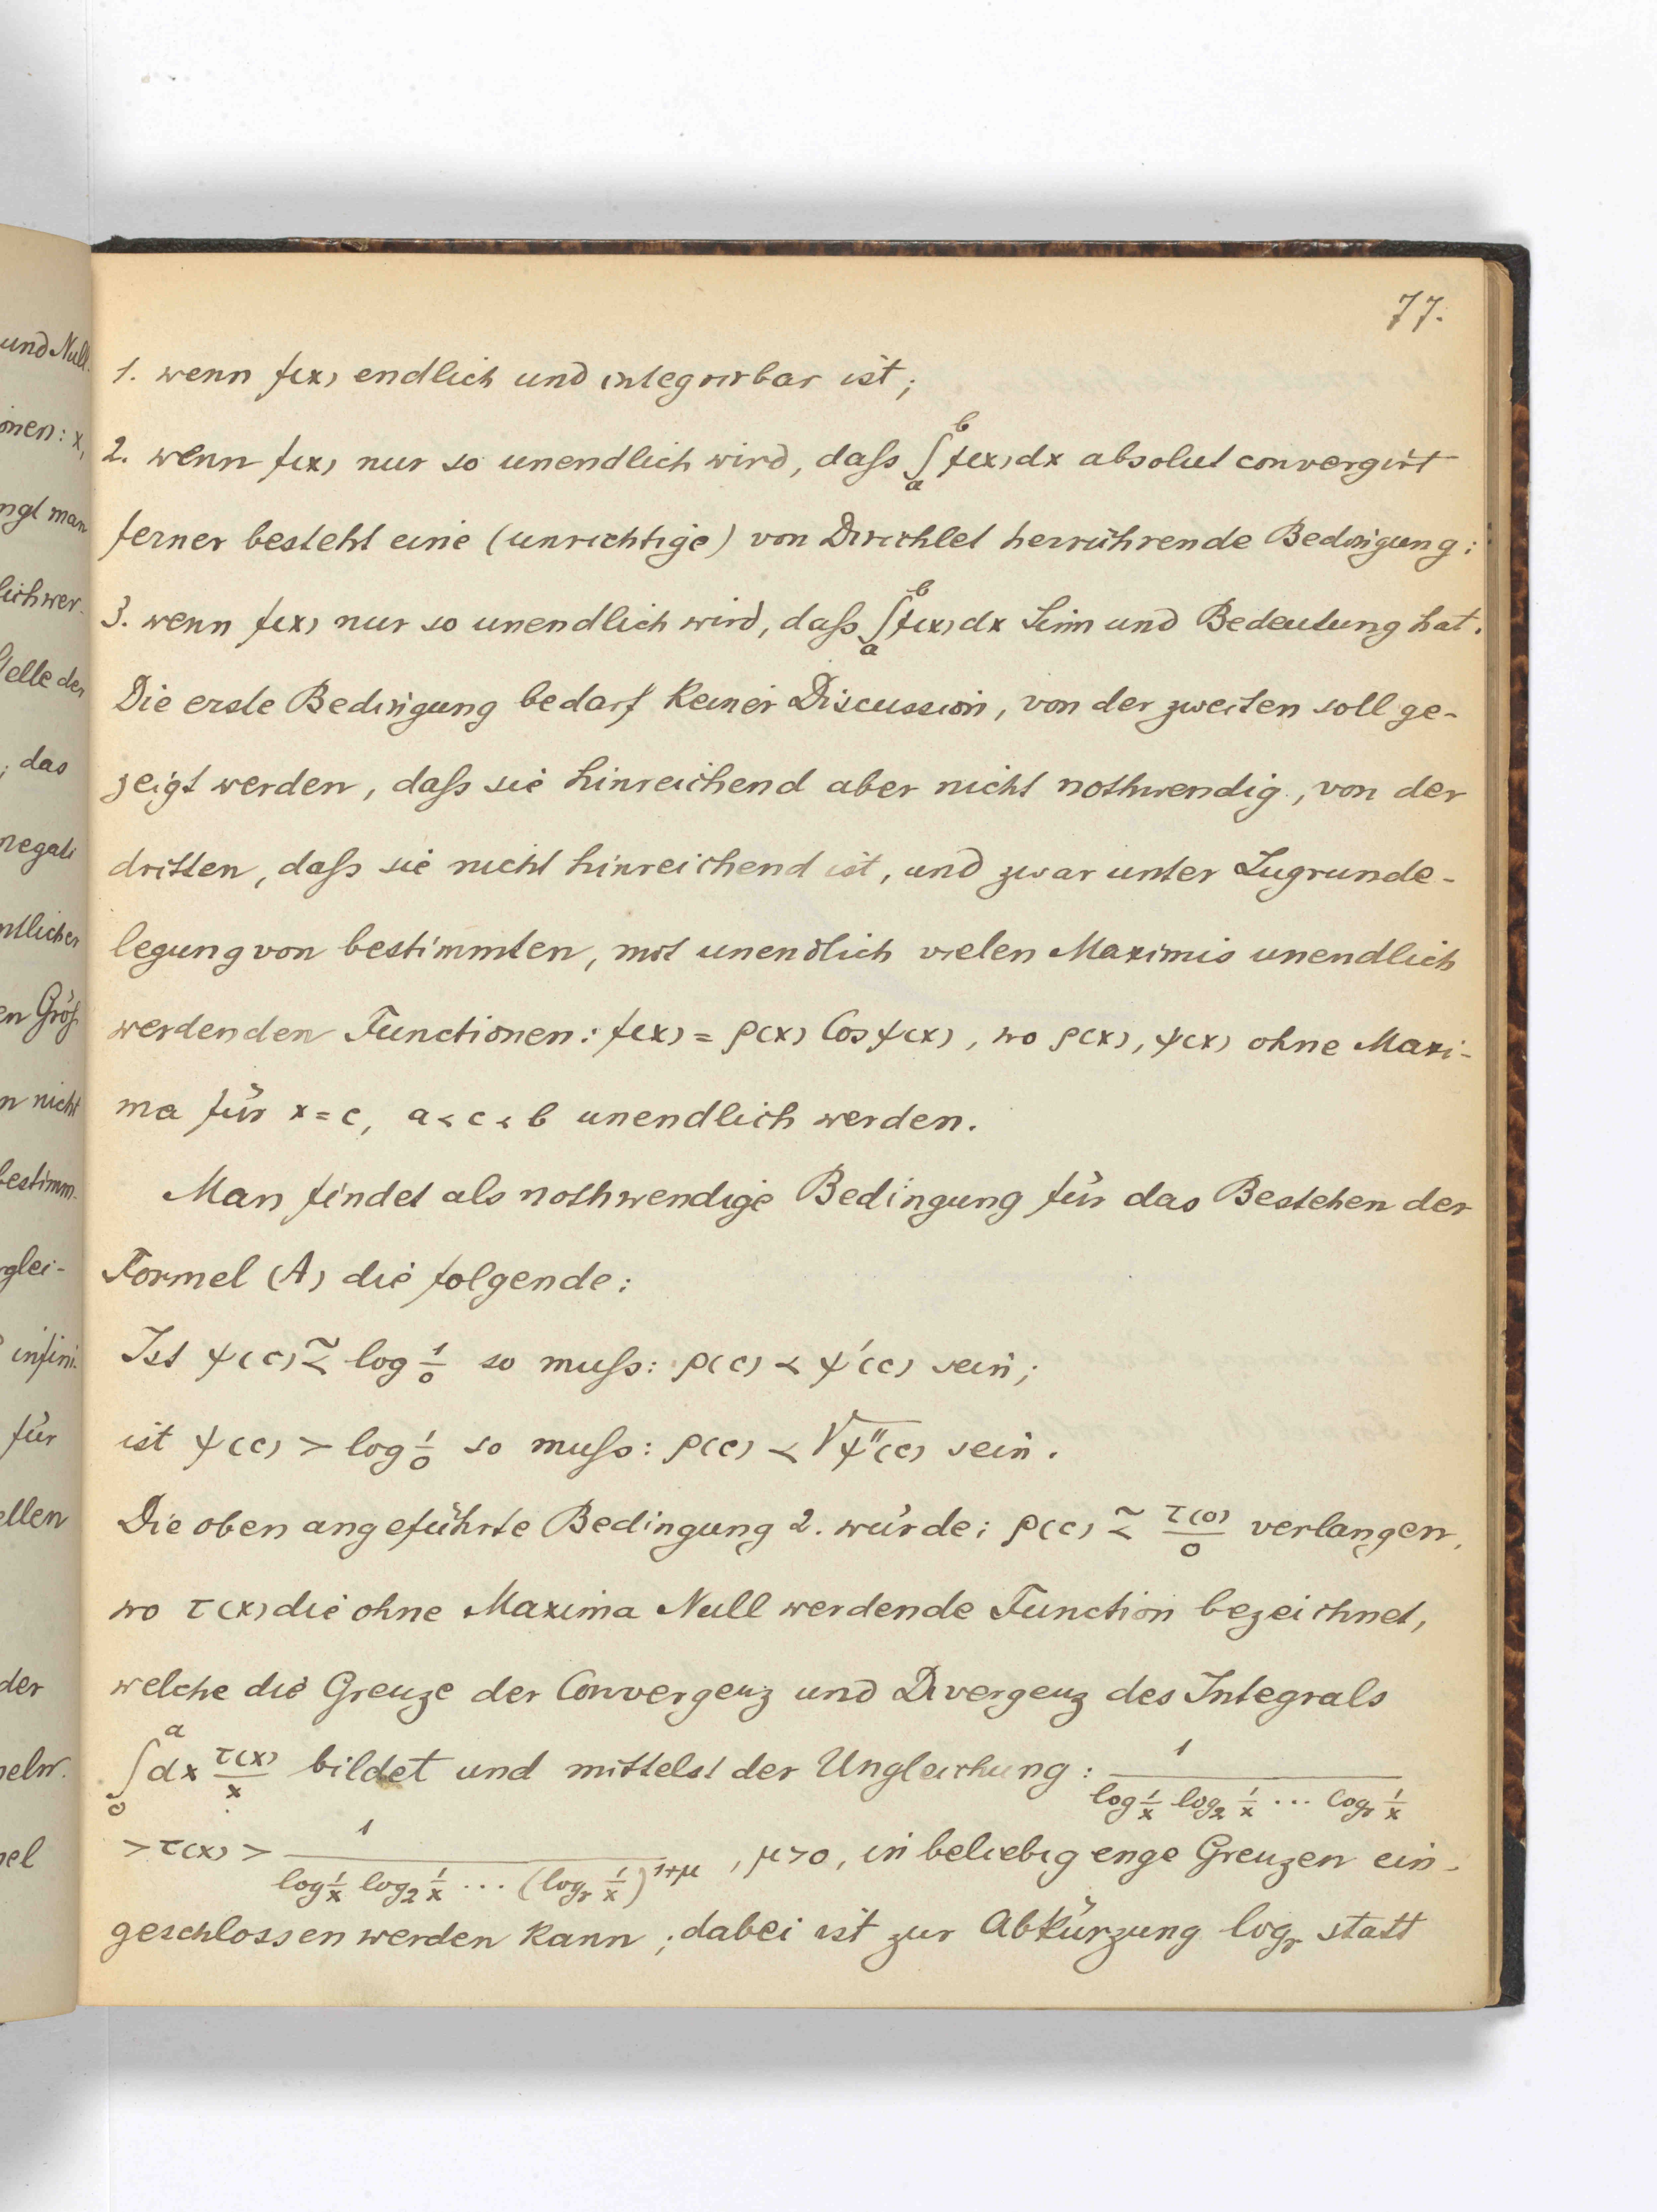 77.
1. wenn f(x) endlich und integrirbar ist;
2. wenn f(x) nur so unendlich wird, daſs ∫_a^b f(x)dx absolut convergirt
ferner besteht eine (unrichtige) von Dirichlet herrührende Bedingung:
3. wenn f(x) nur so unendlich wird, daſs ∫_a^b f(x)dx Sinn und Bedeutung hat.
Die erste Bedingung bedarf keiner Discussion, von der zweiten soll ge-
zeigt werden, daſs sie hinreichend aber nicht nothwendig, von der
dritten, daſs sie nicht hinreichend ist, und zwar unter Zugrunde-
legung von bestimmten, mit unendlich vielen Maximis unendlich
werdenden Functionen: f(x) = ρ(x) Cos ψ(x), wo ρ(x), ψ(x) ohne Maxi-
ma für x = c, a < c < b unendlich werden.
Man findet als nothwendige Bedingung für das Bestehen der
Formel (A) die folgende:
Ist ψ(c) ≲ log 1/0 so muſs: ρ(c) < ψ'(c) sein;
ist ψ(c) > log 1/0 so muſs: ρ(c) < √ψ''(c) sein.
Die oben angeführte Bedingung 2. würde: ρ(c) ≲ τ(0)/0 verlangen,
wo τ(x) die ohne Maxima Null werdende Function bezeichnet,
welche die Grenze der Convergenz und Divergenz des Integrals
∫_0^a dx τ(x)/x bildet und mittelst der Ungleichung: 1/(log 1/x log₂ 1/x ... log_r 1/x)
> τ(x) > 1/(log 1/x log₂ 1/x ... (log_r 1/x)^{1+μ}), μ>0, in beliebig enge Grenzen ein-
geschlossen werden kann; dabei ist zur Abkürzung log_r statt
und Null.
onen: x,
ngt man
lich wer-
telle der
; das
negati
ntlichen
en Gröſ
n nicht
bestimm-
glei-
infini-
für
ellen
der
meln.
nel